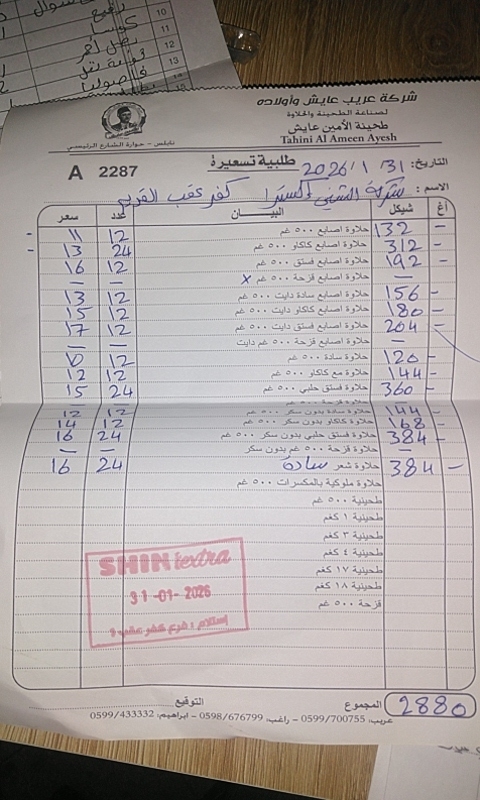 10
11
12
13
شركة عريب عايش وأولاده
لصناعة الطحينة والحلاوة
طحينة الأمين عايش
Tahini Al Ameen Ayesh
نابلس - حوارة الشارع الرئيسي
التاريخ: 31 / 1 / 2026
طلبية تسعيرة
A 2287
الاسم: شركة الشني اكسترا كفر عقب القديم
أغ شيكل البيـــان عدد سعر
132 حلاوة اصابع ٥٠٠ غم 12 11
312 حلاوة اصابع كاكاو ٥٠٠ غم 24 13
192 حلاوة اصابع فستق ٥٠٠ غم 12 16
— حلاوة اصابع قزحة ٥٠٠ غم x — —
156 حلاوة اصابع سادة دايت ٥٠٠ غم 12 13
180 حلاوة اصابع كاكاو دايت ٥٠٠ غم 12 15
204 حلاوة اصابع فستق دايت ٥٠٠ غم 12 17
— حلاوة اصابع قزحة ٥٠٠ غم دايت — —
120 حلاوة سادة ٥٠٠ غم 12 10
144 حلاوة مع كاكاو ٥٠٠ غم 12 12
360 حلاوة فستق حلبي ٥٠٠ غم 24 15
حلاوة قزحة ٥٠٠ غم
144 حلاوة سادة بدون سكر ٥٠٠ غم 12 12
168 حلاوة كاكاو بدون سكر ٥٠٠ غم 12 14
384 حلاوة فستق حلبي بدون سكر ٥٠٠ غم 24 16
— حلاوة قزحة ٥٠٠ غم بدون سكر — —
384 حلاوة شعر سادة 24 16
حلاوة ملوكية بالمكسرات ٥٠٠ غم
طحينية ٥٠٠ غم
طحينية ١ كغم
طحينية ٣ كغم
طحينية ٤ كغم
طحينية ١٧ كغم
طحينية ١٨ كغم
قزحة ٥٠٠ غم
SHINI extra
31-01-2026
إستلام : فرع كفر عقب
2880 المجموع التوقيع
عريب: 0599/700755 - راغب: 0598/676799 - ابراهيم: 0599/433332